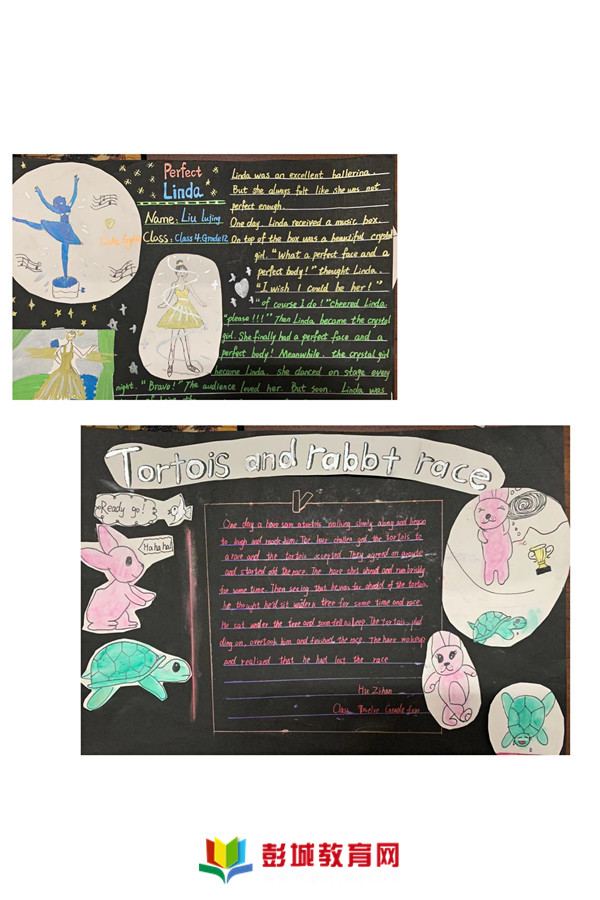 Perfect
Linda
Name: Liu Lujing
Class: Class 4. Grade 12
Linda was an excellent ballerina.
But she always felt like she was not
perfect enough.
One day, Linda received a music box.
On top of the box was a beautiful crystal
girl. "What a perfect face and a
perfect body!" thought Linda.
"I wish I could be her!"
"of course I do!" cheered Linda.
"please!!!" Then Linda became the crystal
girl. She finally had a perfect face and a
perfect body! Meanwhile, the crystal girl
became Linda. she danced on stage every
night. "Bravo!" The audience loved her. But soon, Linda was
Tortois and rabbt race
Ready go!
Ha ha ha!
One day a hare saw a tortois walking slowly along and began
to laugh and mock him. The hare challenged the tortois to
a race and the tortois accepted. They agreed on
and started off the race. The hare shot ahead and ran briskly
for some time. Then seeing that he was far ahead of the tortois,
he thought he'd sit under a tree for some time and
He sat under the tree and soon fell asleep. The tortois
ding on, overtook him and finished the race. The hare woke up
and realized that he had lost the race
Hu Zihan
Class Twelve Grade four
彭城教育网